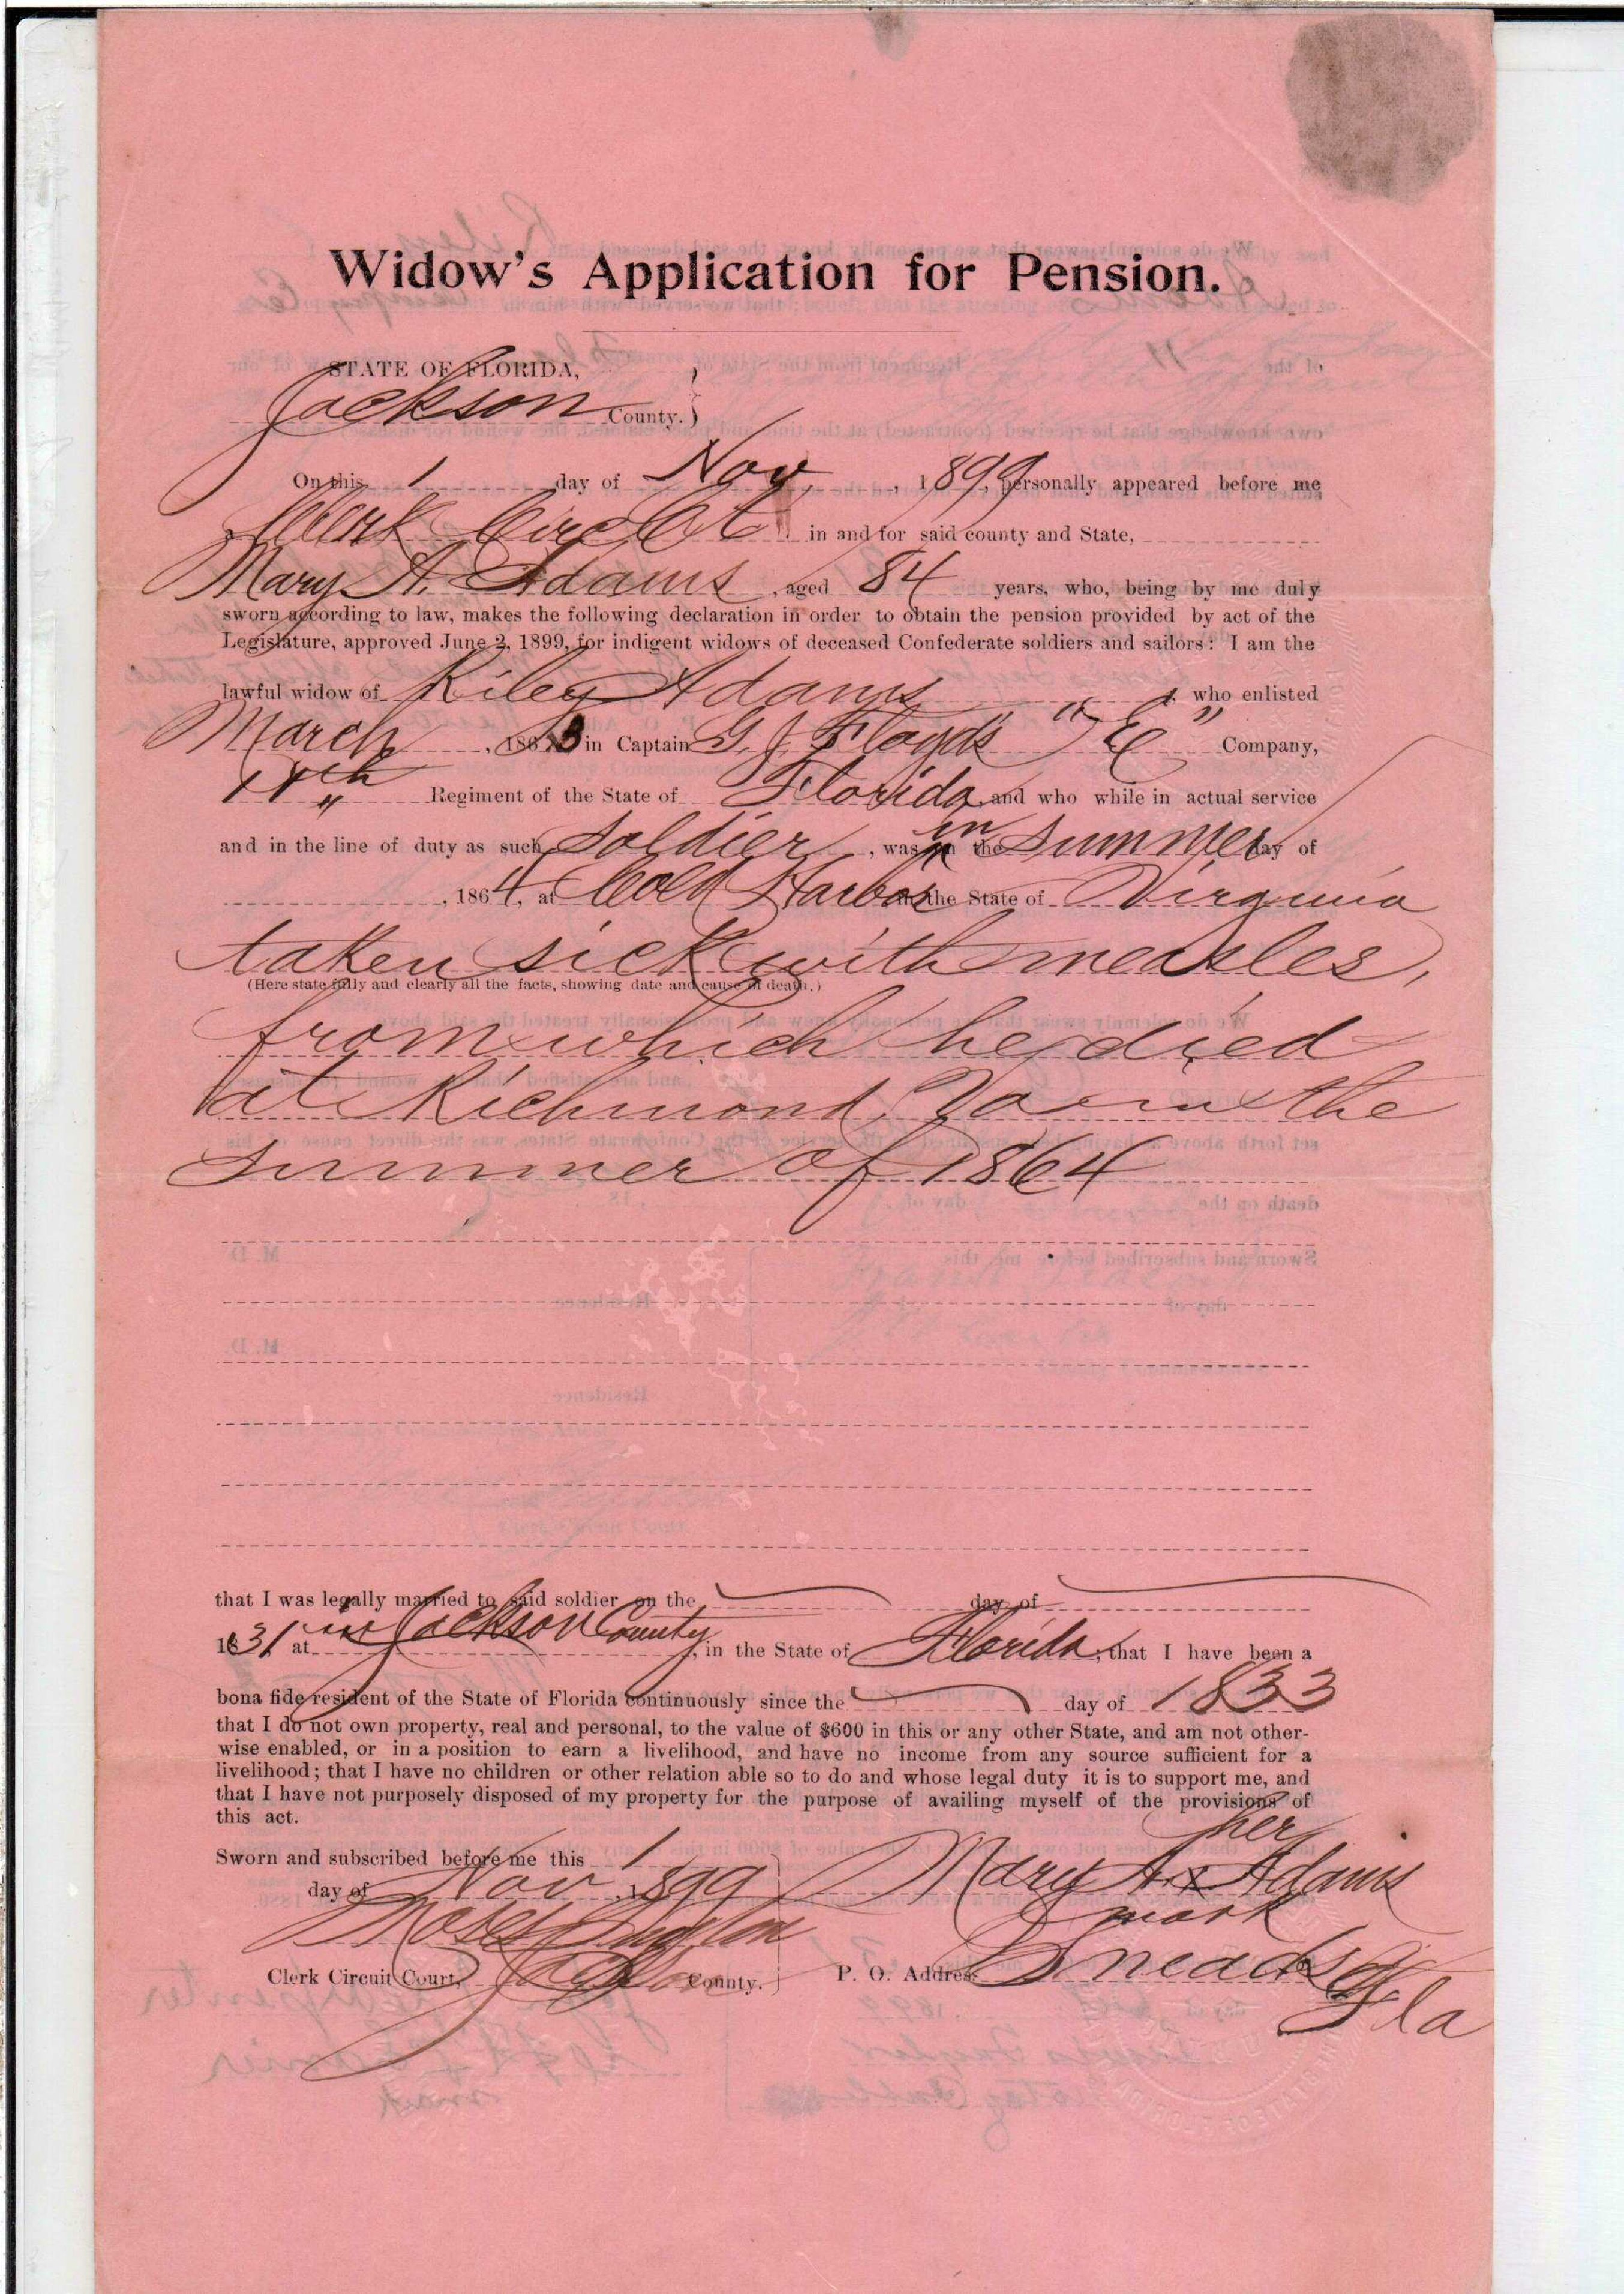 Widow's Application for Pension.
STATE OF FLORIDA,
Jackson County.
On this 1 day of Nov, 1899, personally appeared before me
Clerk Circ Ct in and for said county and State,
Mary A. Adams, aged 84 years, who, being by me duly
sworn according to law, makes the following declaration in order to obtain the pension provided by act of the
Legislature, approved June 2, 1899, for indigent widows of deceased Confederate soldiers and sailors: I am the
lawful widow of Riley Adams, who enlisted
March, 1863 in Captain G. J. Floyds "E" Company,
11th Regiment of the State of Florida, and who while in actual service
and in the line of duty as such soldier, was in the summer day of
, 1864, at Cold Harbor in the State of Virginia
taken sick with measles,
(Here state fully and clearly all the facts, showing date and cause of death.)
from which he died
at Richmond, Va in the
summer of 1864
that I was legally married to said soldier on the day of
1831 at in Jackson County, in the State of Florida; that I have been a
bona fide resident of the State of Florida continuously since the day of 1833
that I do not own property, real and personal, to the value of $600 in this or any other State, and am not other-
wise enabled, or in a position to earn a livelihood, and have no income from any source sufficient for a
livelihood; that I have no children or other relation able so to do and whose legal duty it is to support me, and
that I have not purposely disposed of my property for the purpose of availing myself of the provisions of
this act.
Sworn and subscribed before me this 1
day of Nov, 1899
her
Mary A. x Adams
mark
Moses
Clerk Circuit Court, Jackson County.
P. O. Address Sneads
Fla